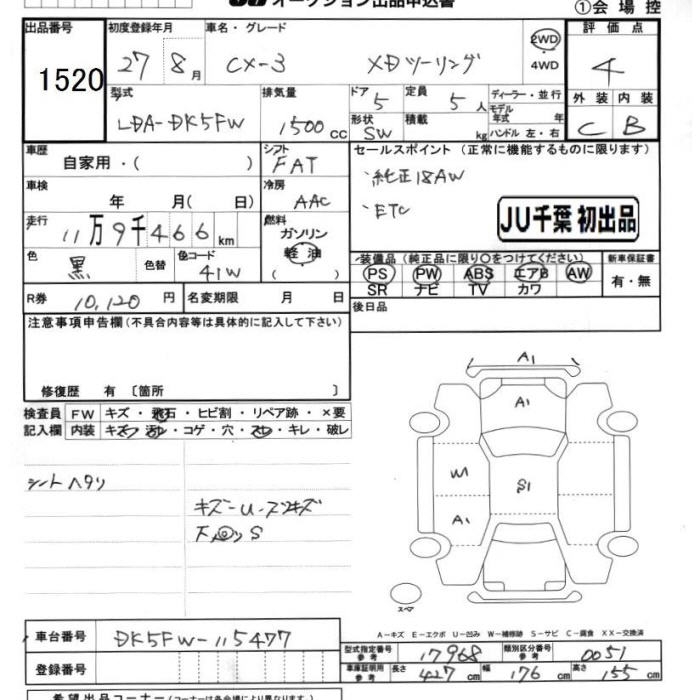 オークション出品申込書
①会場控
出品番号
1520
初度登録年月
27 8月
車名・グレード
CX-3 XDツーリング
2WD
4WD
評価点
4
外装 内装
C B
型式
LDA-DK5FW
排気量
1500cc
ドア 5
形状 SW
定員 5人
積載 kg
ディーラー・並行
モデル
年式 年
ハンドル 左・右
車歴
自家用・( )
シフト
FAT
車検
年 月( 日)
冷房
AAC
走行
11万9千466km
燃料
ガソリン
軽油
( )
色
黒
色替
色コード
41W
R券 10,120円
名変期限 月 日
セールスポイント (正常に機能するものに限ります)
、純正18AW
、ETC
JU千葉 初出品
装備品(純正品に限り○をつけてください)
PS PW ABS エアB AW
SR ナビ TV カワ
新車保証書
有・無
後日品
注意事項申告欄(不具合内容等は具体的に記入して下さい)
修復歴 有 〔箇所 〕
検査員 FW キズ・飛石・ヒビ割・リペア跡・×要
記入欄 内装 キズ・汚・コゲ・穴・スレ・キレ・破レ
シートヘタリ
キズ-U-スリキズ
A1
A1
W1
S1
A1
スペア
A-キズ E-エクボ U-凹み W-補修跡 S-サビ C-腐食 XX-交換済
車台番号
DK5FW-115477
登録番号
型式指定番号
参考
17968
類別区分番号
参考
0051
車庫証明用
参考
長さ 427cm 幅 176cm 高さ 155cm
希望出品コーナー(コーナーは各会場により異なります)